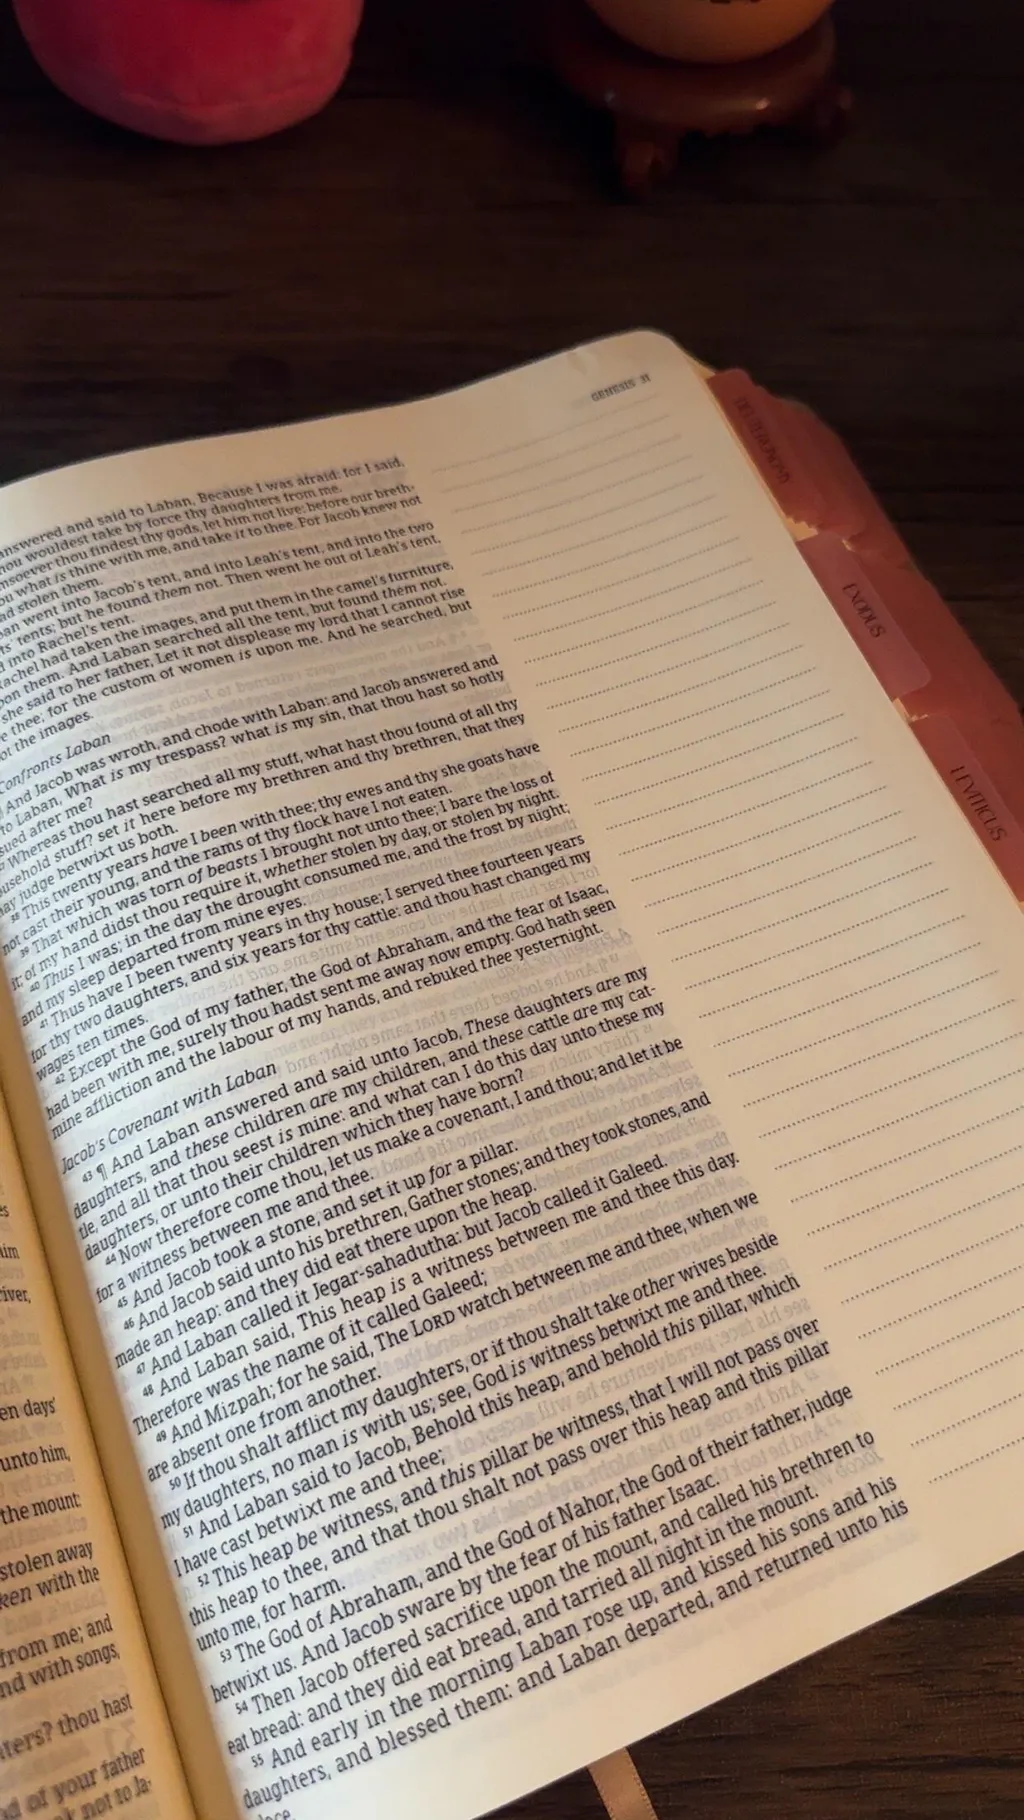 GENESIS 31
answered and said to Laban, Because I was afraid: for I said,
thou wouldest take by force thy daughters from me.
whomsoever thou findest thy gods, let him not live: before our breth-
thou what is thine with me, and take it to thee. For Jacob knew not
had stolen them.
Laban went into Jacob's tent, and into Leah's tent, and into the two
tents; but he found them not. Then went he out of Leah's tent,
d into Rachel's tent.
Rachel had taken the images, and put them in the camel's furniture,
upon them. And Laban searched all the tent, but found them not.
she said to her father, Let it not displease my lord that I cannot rise
e thee, for the custom of women is upon me. And he searched, but
ot the images.
Confronts Laban
¶ And Jacob was wroth, and chode with Laban: and Jacob answered and
to Laban, What is my trespass? what is my sin, that thou hast so hotly
sued after me?
37 Whereas thou hast searched all my stuff, what hast thou found of all thy
ousehold stuff? set it here before my brethren and thy brethren, that they
may judge betwixt us both.
38 This twenty years have I been with thee; thy ewes and thy she goats have
not cast their young, and the rams of thy flock have I not eaten.
39 That which was torn of beasts I brought not unto thee; I bare the loss of
it; of my hand didst thou require it, whether stolen by day, or stolen by night.
40 Thus I was; in the day the drought consumed me, and the frost by night;
and my sleep departed from mine eyes.
41 Thus have I been twenty years in thy house; I served thee fourteen years
for thy two daughters, and six years for thy cattle: and thou hast changed my
wages ten times.
42 Except the God of my father, the God of Abraham, and the fear of Isaac,
had been with me, surely thou hadst sent me away now empty. God hath seen
mine affliction and the labour of my hands, and rebuked thee yesternight.
Jacob's Covenant with Laban
43 ¶ And Laban answered and said unto Jacob, These daughters are my
daughters, and these children are my children, and these cattle are my cat-
tle, and all that thou seest is mine: and what can I do this day unto these my
daughters, or unto their children which they have born?
44 Now therefore come thou, let us make a covenant, I and thou; and let it be
for a witness between me and thee.
45 And Jacob took a stone, and set it up for a pillar.
46 And Jacob said unto his brethren, Gather stones; and they took stones, and
made an heap: and they did eat there upon the heap.
47 And Laban called it Jegar-sahadutha: but Jacob called it Galeed.
48 And Laban said, This heap is a witness between me and thee this day.
Therefore was the name of it called Galeed;
49 And Mizpah; for he said, The LORD watch between me and thee, when we
are absent one from another.
50 If thou shalt afflict my daughters, or if thou shalt take other wives beside
my daughters, no man is with us; see, God is witness betwixt me and thee.
51 And Laban said to Jacob, Behold this heap, and behold this pillar, which
I have cast betwixt me and thee;
52 This heap be witness, and this pillar be witness, that I will not pass over
this heap to thee, and that thou shalt not pass over this heap and this pillar
unto me, for harm.
53 The God of Abraham, and the God of Nahor, the God of their father, judge
betwixt us. And Jacob sware by the fear of his father Isaac.
54 Then Jacob offered sacrifice upon the mount, and called his brethren to
eat bread: and they did eat bread, and tarried all night in the mount.
55 And early in the morning Laban rose up, and kissed his sons and his
daughters, and blessed them: and Laban departed, and returned unto his
place.
him
river,
en days'
unto him,
the mount:
stolen away
ken with the
from me; and
nd with songs,
ters? thou hast
d of your father
k not to Ja-
EXODUS
LEVITICUS